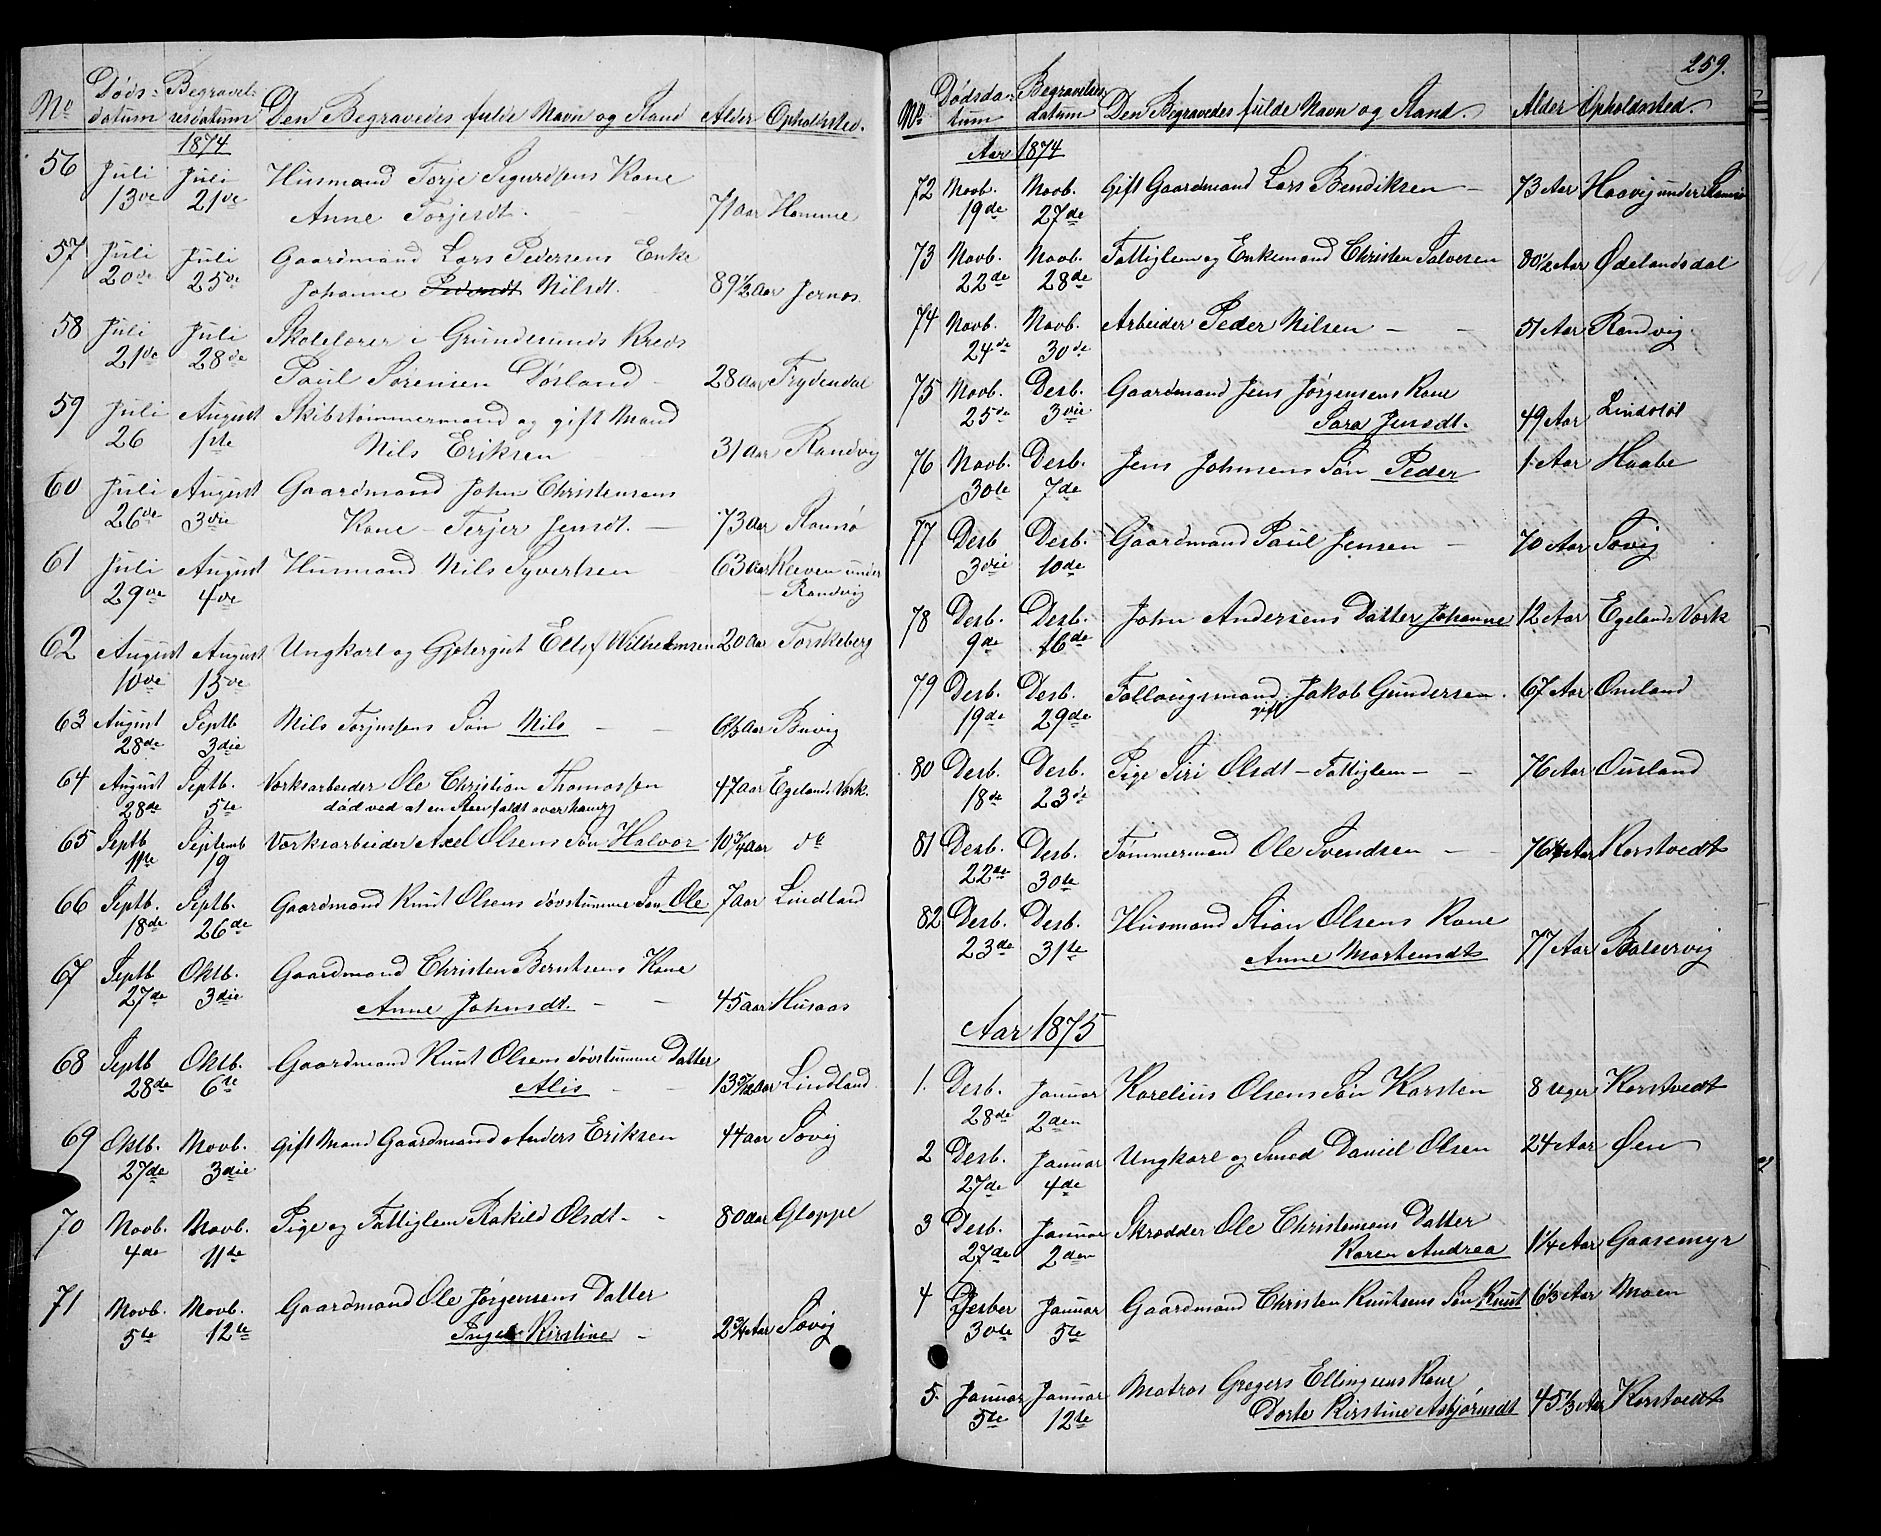 No Døds- Begravel- Den Begravedes fulde Navn og Stand Alder Opholdssted.
datum sesdatum
1874
56 Juli Juli Husmand Torje Sigurdsens Kone
13de 21de Anne Torjesdt. - - 71 Aar Homme
57 Juli Juli Gaardmand Lars Pedersens Enke
20de 25de Johanne Pedersdt Nilsdt. 89 1/2 Aar Jernæs
58 Juli Juli Skolelærer i Grundesunds Kreds
21de 28de Paul Sørensen Dørland - 28 Aar Frydendal
59 Juli August Skibstømmermand og gift Mand
26 1ste Nils Eriksen - - 31 Aar Randvig
60 Juli August Gaardmand John Christensens
26de 3die Kone - Terjer Jensdt. - 73 Aar Ramsø
61 Juli August Husmand Nils Syvertsen 63 Aar Røeven under
29de 4de - Randvig
62 August August Ungkarl og Gjetergut Ellef Wilhelmsen 20 Aar Torskeberg
10de 15de
63 August Septb Nils Torjusens Søn Nils - - 6 1/3 Aar Buvig
28de 3die
64 August Septb. Værksarbeider Ole Christian Thomassen 47 Aar Egelands Værk.
28de 5te død ved at en Sten faldt over ham
65 Septb Septemb Værksarbeider Axel Olsens Søn Halvor 10 3/4 Aar do
11te 19
66 Septb. Septb. Gaardmand Knut Olsens døvstumme Søn Ole 7 Aar Lindland
18de 26de
67 Septb Oktb. Gaardmand Christen Berntsens Kone
27de 3die Anne Johnsdt. - - 45 Aar Husaas
68 Septb Oktb. Gaardmand Knut Olsens døvstumme Datter
28de 6te Alis - - 13 5/12 Aar Lindland
69 Oktb. Novb. gift Mand Gaardmand Anders Eriksen 44 Aar Søvig
27de 3die
70 Novb. Novb. Pige og Fattiglem Rakild Olsdt. - - 80 Aar Gloppe
4de 11te
71 Novb. Novb. Gaardmand Ole Jørgensens Datter
5te 12te Inger Kirstine - 2 3/4 Aar Søvig
259.
No Dødsda- Begravelses Den Begravedes fulde Navn og Stand. Alder Opholdssted.
tum datum
Aar 1874
72 Novb. Novb. gift Gaardmand Lars Bendiksen - 73 Aar Haavig under Ramsø
19de 27de
73 Novb. Novb. Fattiglem og Enkemand Christen Salvesen 80 1/2 Aar Ødelandsdal
22de 28de
74 Novb. Novb. Arbeider Peder Nilsen - - 51 Aar Randvig
24de 30de
75 Novb. Desb. Gaardmand Jens Jørgensens Kone
25de 3die Sara Jensdt. 49 Aar Lindstøl
76 Novb. Desb. Jens Johnsens Søn Peder 1. Aar Haabe
30te 7de
77 Desb Desb. Gaardmand Paul Jensen - 70 Aar Søvig
3die 10de
78 Desb. Desb. John Andersens Datter Johanne 12 Aar Egelands Værk
9de 16de
79 Desb. Desb. Follougsmand Jakob Gundersen. 67 Aar Omland
19de 29de gift
80 Desb. Desb. Pige Siri Olsdt - Fattiglem - - 76 Aar Omland
18de 23de
81 Desb. Desb. Tømmermand Ole Svendsen - - 76 1/4 Aar Korstvedt
22de 30te
82 Desb. Desb. Husmand Stian Olsens Kone
23de 31te Anne Mortensdt 77 Aar Balevig
Aar 1875
1. Desb. Januar Karelius Olsens Søn Karsten 8 Uger Korstvedt
28de 2den
2 Desb. Januar Ungkarl og Smed Daniel Olsen 24 Aar Øen
27de 4de
3 Desb. Januar Skrædder Ole Christensens Datter
27de 2den Karen Andrea 1 1/4 Aar Gaasemyr
4 Desber Januar Gaardmand Christen Knutsens Søn Knut 6 1/3 Aar Moen
30te 5te
5. Januar Januar Matros Gregers Ellingsens Kone
5te 12te Dorte Kirstine Asbjørnsdt 45 1/3 Aar Korstvedt